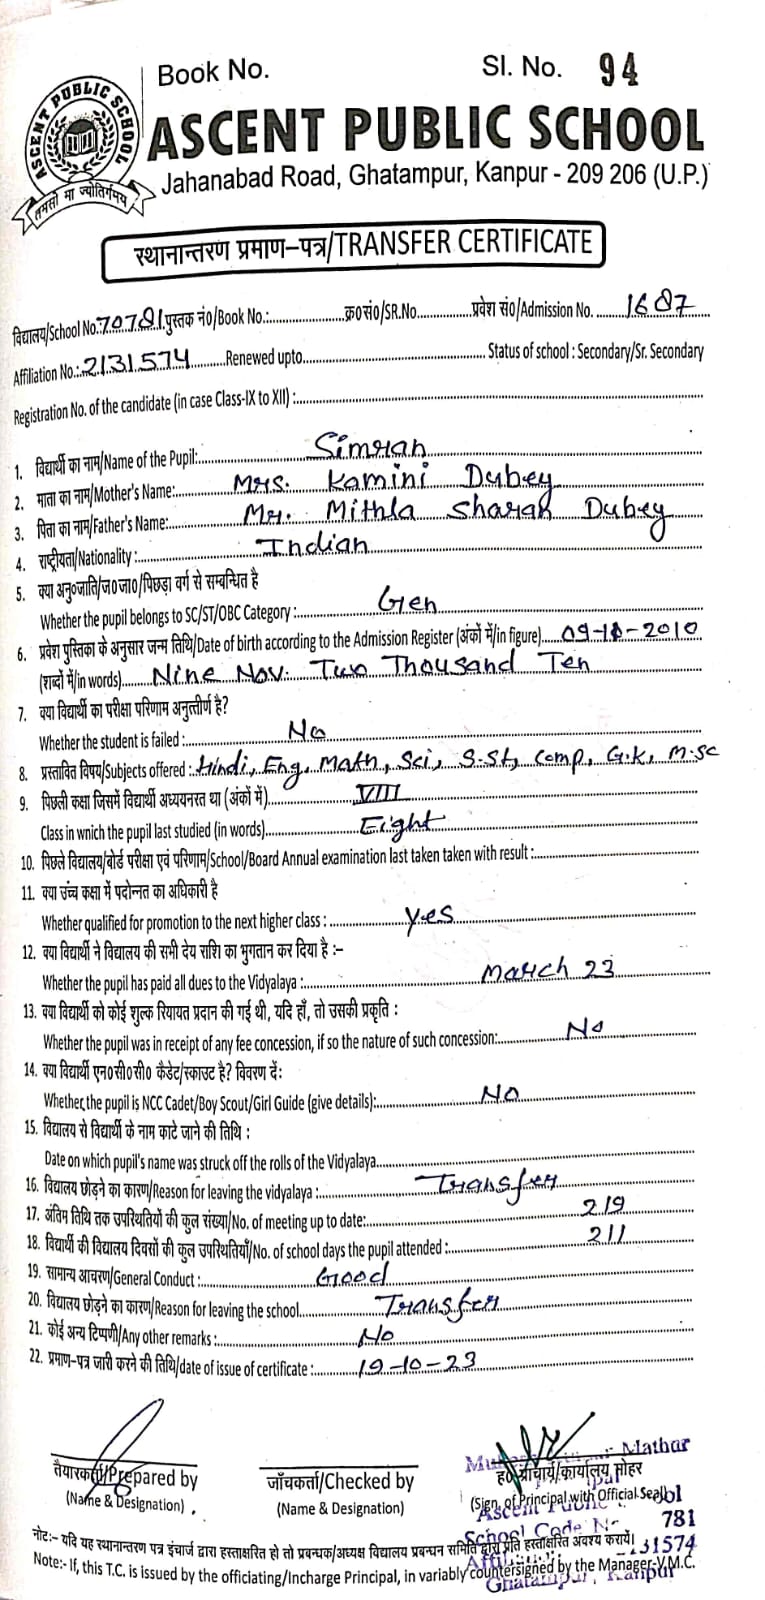 Book No. Sl. No. 94
ASCENT PUBLIC SCHOOL
तमसो मा ज्योतिर्गमय
ASCENT PUBLIC SCHOOL
Jahanabad Road, Ghatampur, Kanpur - 209 206 (U.P.)
स्थानान्तरण प्रमाण-पत्र/TRANSFER CERTIFICATE
विद्यालय/School No. 70781 पुस्तक नं०/Book No.:........ क्र०सं०/SR.No......... प्रवेश सं०/Admission No. 1687
Affiliation No.: 2131574 Renewed upto........ Status of school : Secondary/Sr. Secondary
Registration No. of the candidate (in case Class-IX to XII) :........
1. विद्यार्थी का नाम/Name of the Pupil: Simran
2. माता का नाम/Mother's Name: Mrs. Kamini Dubey
3. पिता का नाम/Father's Name: Mr. Mithla Sharan Dubey
4. राष्ट्रीयता/Nationality : Indian
5. क्या अनु०जाति/ज०जा०/पिछड़ा वर्ग से सम्बन्धित है
Whether the pupil belongs to SC/ST/OBC Category : Gen
6. प्रवेश पुस्तिका के अनुसार जन्म तिथि/Date of birth according to the Admission Register (अंकों में/in figure) 09-11-2010
(शब्दों में/in words) Nine Nov. Two Thousand Ten
7. क्या विद्यार्थी का परीक्षा परिणाम अनुत्तीर्ण है?
Whether the student is failed : No
8. प्रस्तावित विषय/Subjects offered : Hindi, Eng, Math, Sci, S.St, Comp, G.K, M.Sc
9. पिछली कक्षा जिसमें विद्यार्थी अध्ययनरत था (अंकों में) VIII
Class in wnich the pupil last studied (in words) Eight
10. पिछले विद्यालय/बोर्ड परीक्षा एवं परिणाम/School/Board Annual examination last taken taken with result :........
11. क्या उच्च कक्षा में पदोन्नत का अधिकारी है
Whether qualified for promotion to the next higher class : Yes
12. क्या विद्यार्थी ने विद्यालय की सभी देय राशि का भुगतान कर दिया है :-
Whether the pupil has paid all dues to the Vidyalaya : March 23
13. क्या विद्यार्थी को कोई शुल्क रियायत प्रदान की गई थी, यदि हाँ, तो उसकी प्रकृति :
Whether the pupil was in receipt of any fee concession, if so the nature of such concession: No
14. क्या विद्यार्थी एन०सी०सी० कैडेट/स्काउट है? विवरण दें:
Whether,the pupil is NCC Cadet/Boy Scout/Girl Guide (give details): No
15. विद्यालय से विद्यार्थी के नाम काटे जाने की तिथि :
Date on which pupil's name was struck off the rolls of the Vidyalaya........
16. विद्यालय छोड़ने का कारण/Reason for leaving the vidyalaya : Transfer
17. अंतिम तिथि तक उपस्थितियों की कुल संख्या/No. of meeting up to date: 219
18. विद्यार्थी की विद्यालय दिवसों की कुल उपस्थितियाँ/No. of school days the pupil attended : 211
19. सामान्य आचरण/General Conduct : Good
20. विद्यालय छोड़ने का कारण/Reason for leaving the school Transfer
21. कोई अन्य टिप्पणी/Any other remarks : No
22. प्रमाण-पत्र जारी करने की तिथि/date of issue of certificate : 19-10-23
Mathar
तैयारकर्ता/Prepared by जाँचकर्ता/Checked by ह० प्राचार्य/कार्यालय मोहर
(Name & Designation) (Name & Designation) (Sign. of Principal with Official Seal)
Ascent Public
School Code No 781
नोट:- यदि यह स्थानान्तरण पत्र इंचार्ज द्वारा हस्ताक्षरित हो तो प्रबन्धक/अध्यक्ष विद्यालय प्रबन्धन समिति द्वारा प्रति हस्ताक्षरित अवश्य करायें।
131574
Note:- If, this T.C. is issued by the officiating/Incharge Principal, in variably countersigned by the Manager-V.M.C.
Ghatampur, Kanpur